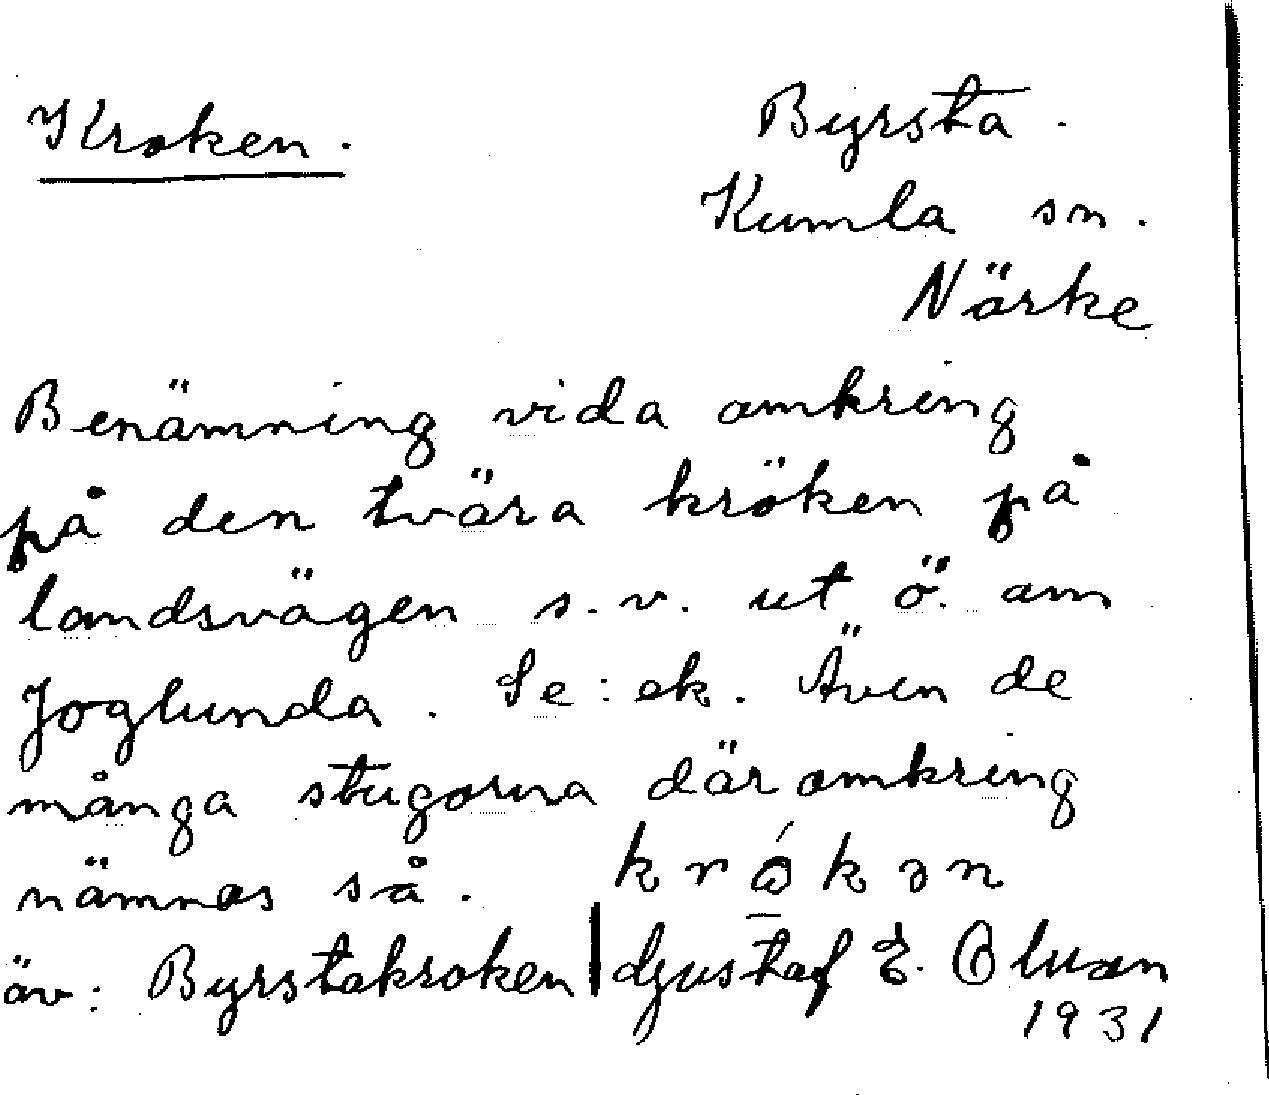 Kroken.
Byrsta.
Kumla sn.
Närke
Benämning vida omkring
på den tvära kröken på
landsvägen s.v. ut ö. om
Joglunda. Se: ek. Även de
många stugorna däromkring
nämnas så. krókən
äv: Byrstakroken | Gustaf E.
1931